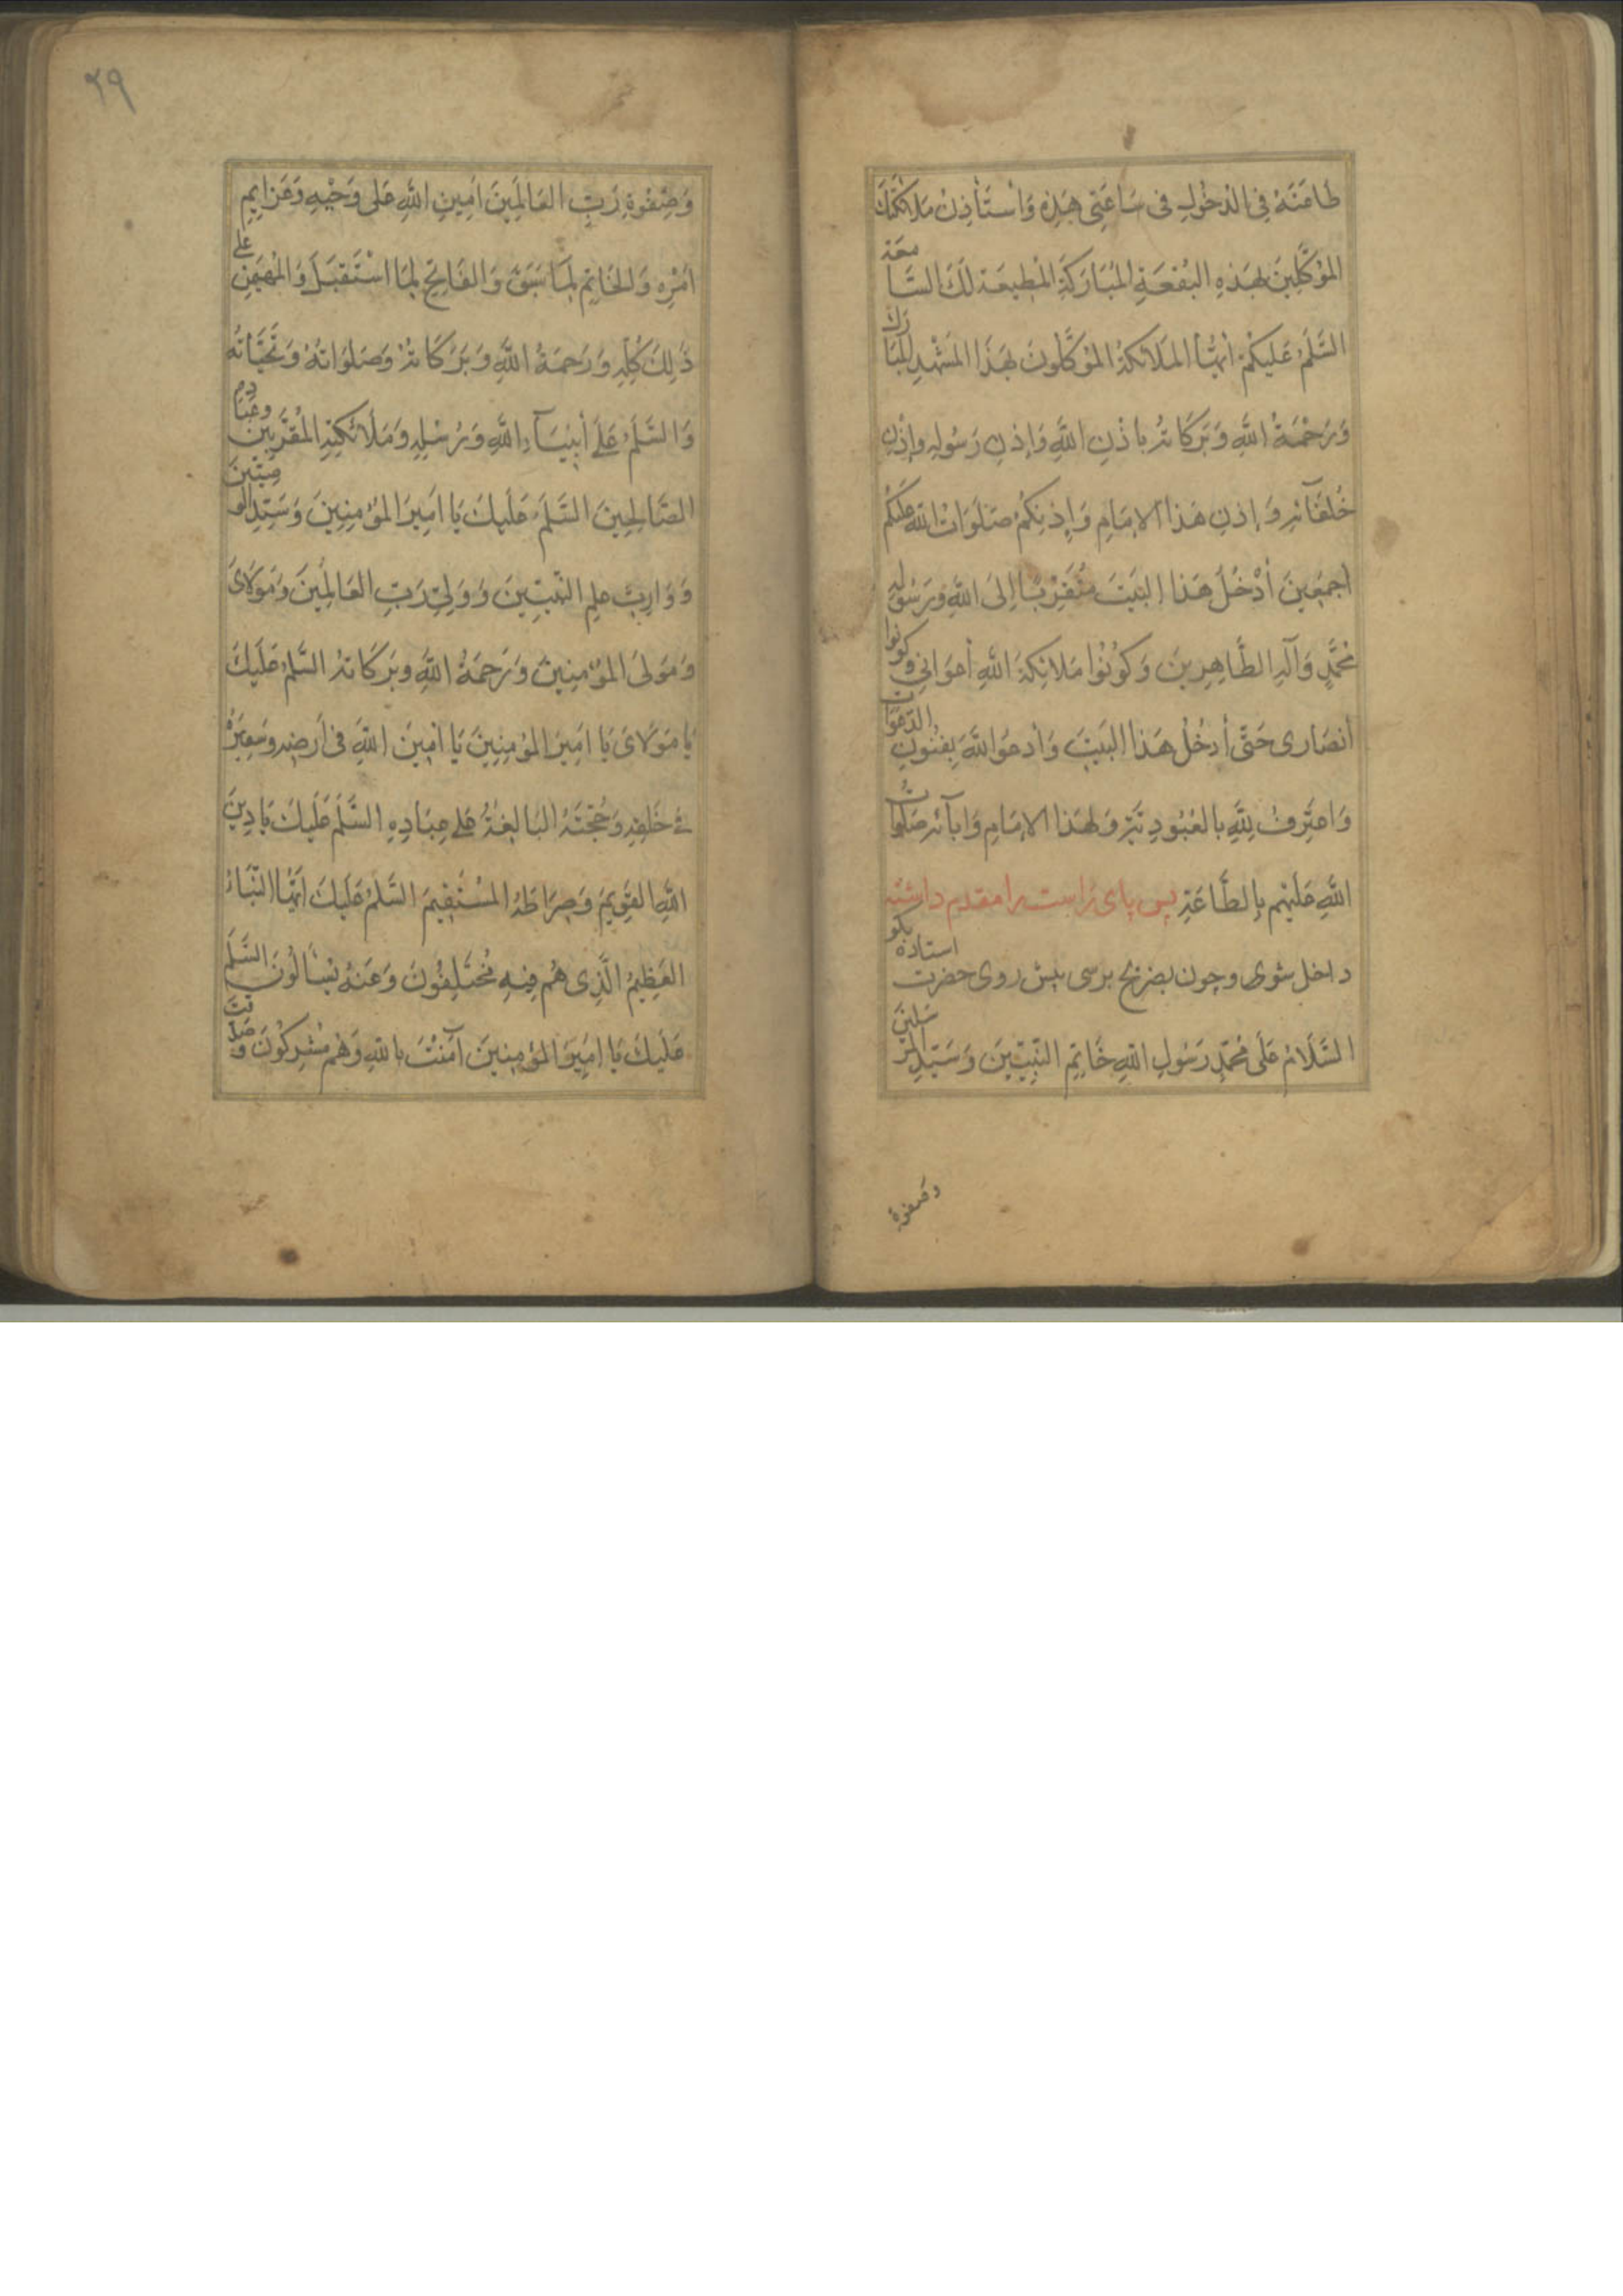 طَاعَتَهُ فِی الدُّخُولِ فِی سَاعَتِی هَذِهِ وَاَسْتَأْذِنُ مَلَائِكَتَكَ
المُوَكَّلِينَ بِهَذِهِ البُقْعَةِ المُبَارَكَةِ المُطِيعَةَ لَكَ السَّامِعَةَ
السَّلَمُ عَلَيْكُمْ اَيُّهَا المَلَائِكَةُ المُوَكَّلُونَ بِهَذَا المَشْهَدِ المُبَارَكِ
وَرَحْمَةُ اللَّهِ وَبَرَكَاتُهُ بِاِذْنِ اللَّهِ وَاِذْنِ رَسُولِهِ وَاِذْنِ
خُلَفَآئِهِ وَاِذْنِ هَذَا الاِمَامِ وَاِذْنِكُمْ صَلَوَاتُ اللهِ عَلَيْكُمْ
اَجْمَعِينَ أَدْخُلُ هَذَا البَيْتَ مُتَقَرِّبًا اِلَى اللَّهِ وَرَسُولِهِ
مُحَمَّدٍ وَآلِهِ الطَّاهِرِينَ وَكُونُوا مَلَائِكَةَ اللَّهِ أَعْوَانِی وَكُونُوا
أَنْصَارِی حَتَّی أَدْخُلَ هَذَا البَيْتَ وَاَدْعُوَاللَّهَ بِفُنُونِ الدَّعَوَاتِ
وَاَعْتَرِفُ لِلَّهِ بِالعُبُودِيَّةِ وَلِهَذَا الاِمَامِ وَاَبَآئِهِ صَلَوَاتُ
اللَّهِ عَلَيْهِمْ بِالطَّاعَةِ پس پای راست را مقدم داشته
داخل شوی و چون بضریح برسی پیش روی حضرت استاده بکو
السَّلَامُ عَلَی مُحَمَّدٍ رَسُولِ اللَّهِ خَاتِمِ النَّبِيِّينَ وَسَيِّدِ المُرْسَلِينَ
وصفوة
٢٩
وَصِفْوَةِ رَبِّ العَالَمِينَ اَمِينِ اللَّهِ عَلَی وَحْيِهِ وَعَزَايِمِ
اَمْرِهِ وَالخَاتِمِ لِمَا سَبَقَ وَالفَاتِحِ لِمَا اسْتَقْبَلَ وَالمُهَيْمِنِ عَلَی
ذَلِكَ كُلِّهِ وَرَحْمَةُ اللَّهِ وَبَرَكَاتُهُ وَصَلَوَاتُهُ وَتَحِيَّاتُهُ
وَالسَّلَمُ عَلَی أَنْبِيَآءِ اللَّهِ وَرُسُلِهِ وَمَلَائِكَتِهِ المُقَرَّبِينَ وَعِبَادِهِ
الصَّالِحِينَ السَّلَمُ عَلَيْكَ يَا اَمِيرَ المُؤْمِنِينَ وَسَيِّدَ الوَصِيِّينَ
وَوَارِثَ عِلْمِ النَّبِيِّينَ وَوَلِیَّ رَبِّ العَالَمِينَ وَمَوْلَایَ
وَمَوْلَی المُؤْمِنِينَ وَرَحْمَةُ اللَّهِ وَبَرَكَاتُهُ السَّلَمُ عَلَيْكَ
يَا مَوْلَایَ يَا اَمِيرَ المُؤْمِنِينَ يَا اَمِينَ اللَّهِ فِی اَرْضِهِ وَسَفِيرَهُ
فِی خَلْقِهِ وَحُجَّتَهُ البَالِغَةُ عَلَی عِبَادِهِ السَّلَمُ عَلَيْكَ يَا دِينَ
اللَّهِ القَوِيمَ وَصِرَاطَهُ المُسْتَقِيمَ السَّلَمُ عَلَيْكَ اَيُّهَا النَّبَاءُ
العَظِيمُ الَّذِی هُمْ فِيهِ مُخْتَلِفُونَ وَعَنْهُ يُسْاَلُونَ السَّلَمُ
عَلَيْكَ يَا اَمِيرَ المُؤْمِنِينَ آمَنْتَ بِاللهِ وَهُمْ مُشْرِكُونَ وَصَدَّقْتَ